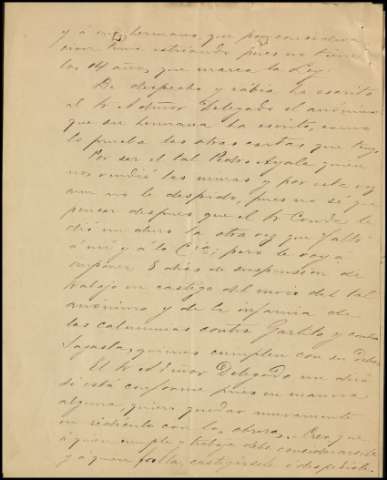 y á su hermano que por consideracion
tuve estuviendo pues no tiene
los 14 años, que marca la Ley.
De despecho y rabia ha escrito
al Sr Admor Delegado el anónimo
que su hermana ha escrito, como
lo prueba las otras cartas que tengo
Por ser el tal Pedro Ayala quien
nos vendió las minas y por esta vez
aun no le despido, pues no sé que
pensar despues que el Sr Conde le
dió un duro la otra vez que faltó
á mi y á la Cia; pero le voy a
imponer 8 dias de suspension de
trabajo en castigo del envio del tal
anonimo y de la infamia de
las calumnias contra Garlito y contra
Sagasta, quienes cumplen con su deber
El Sr Admor Delegado me dirá
si está conforme pues en manera
alguna, quiero quedar nuevamente
en ridiculo con los obreros. Creo que
á quien cumple y trabaja debe considerarsele
y á quien falla, castigarsele ó despedirle.